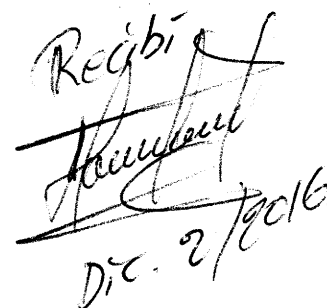 Recibí
Dic. 2/2016